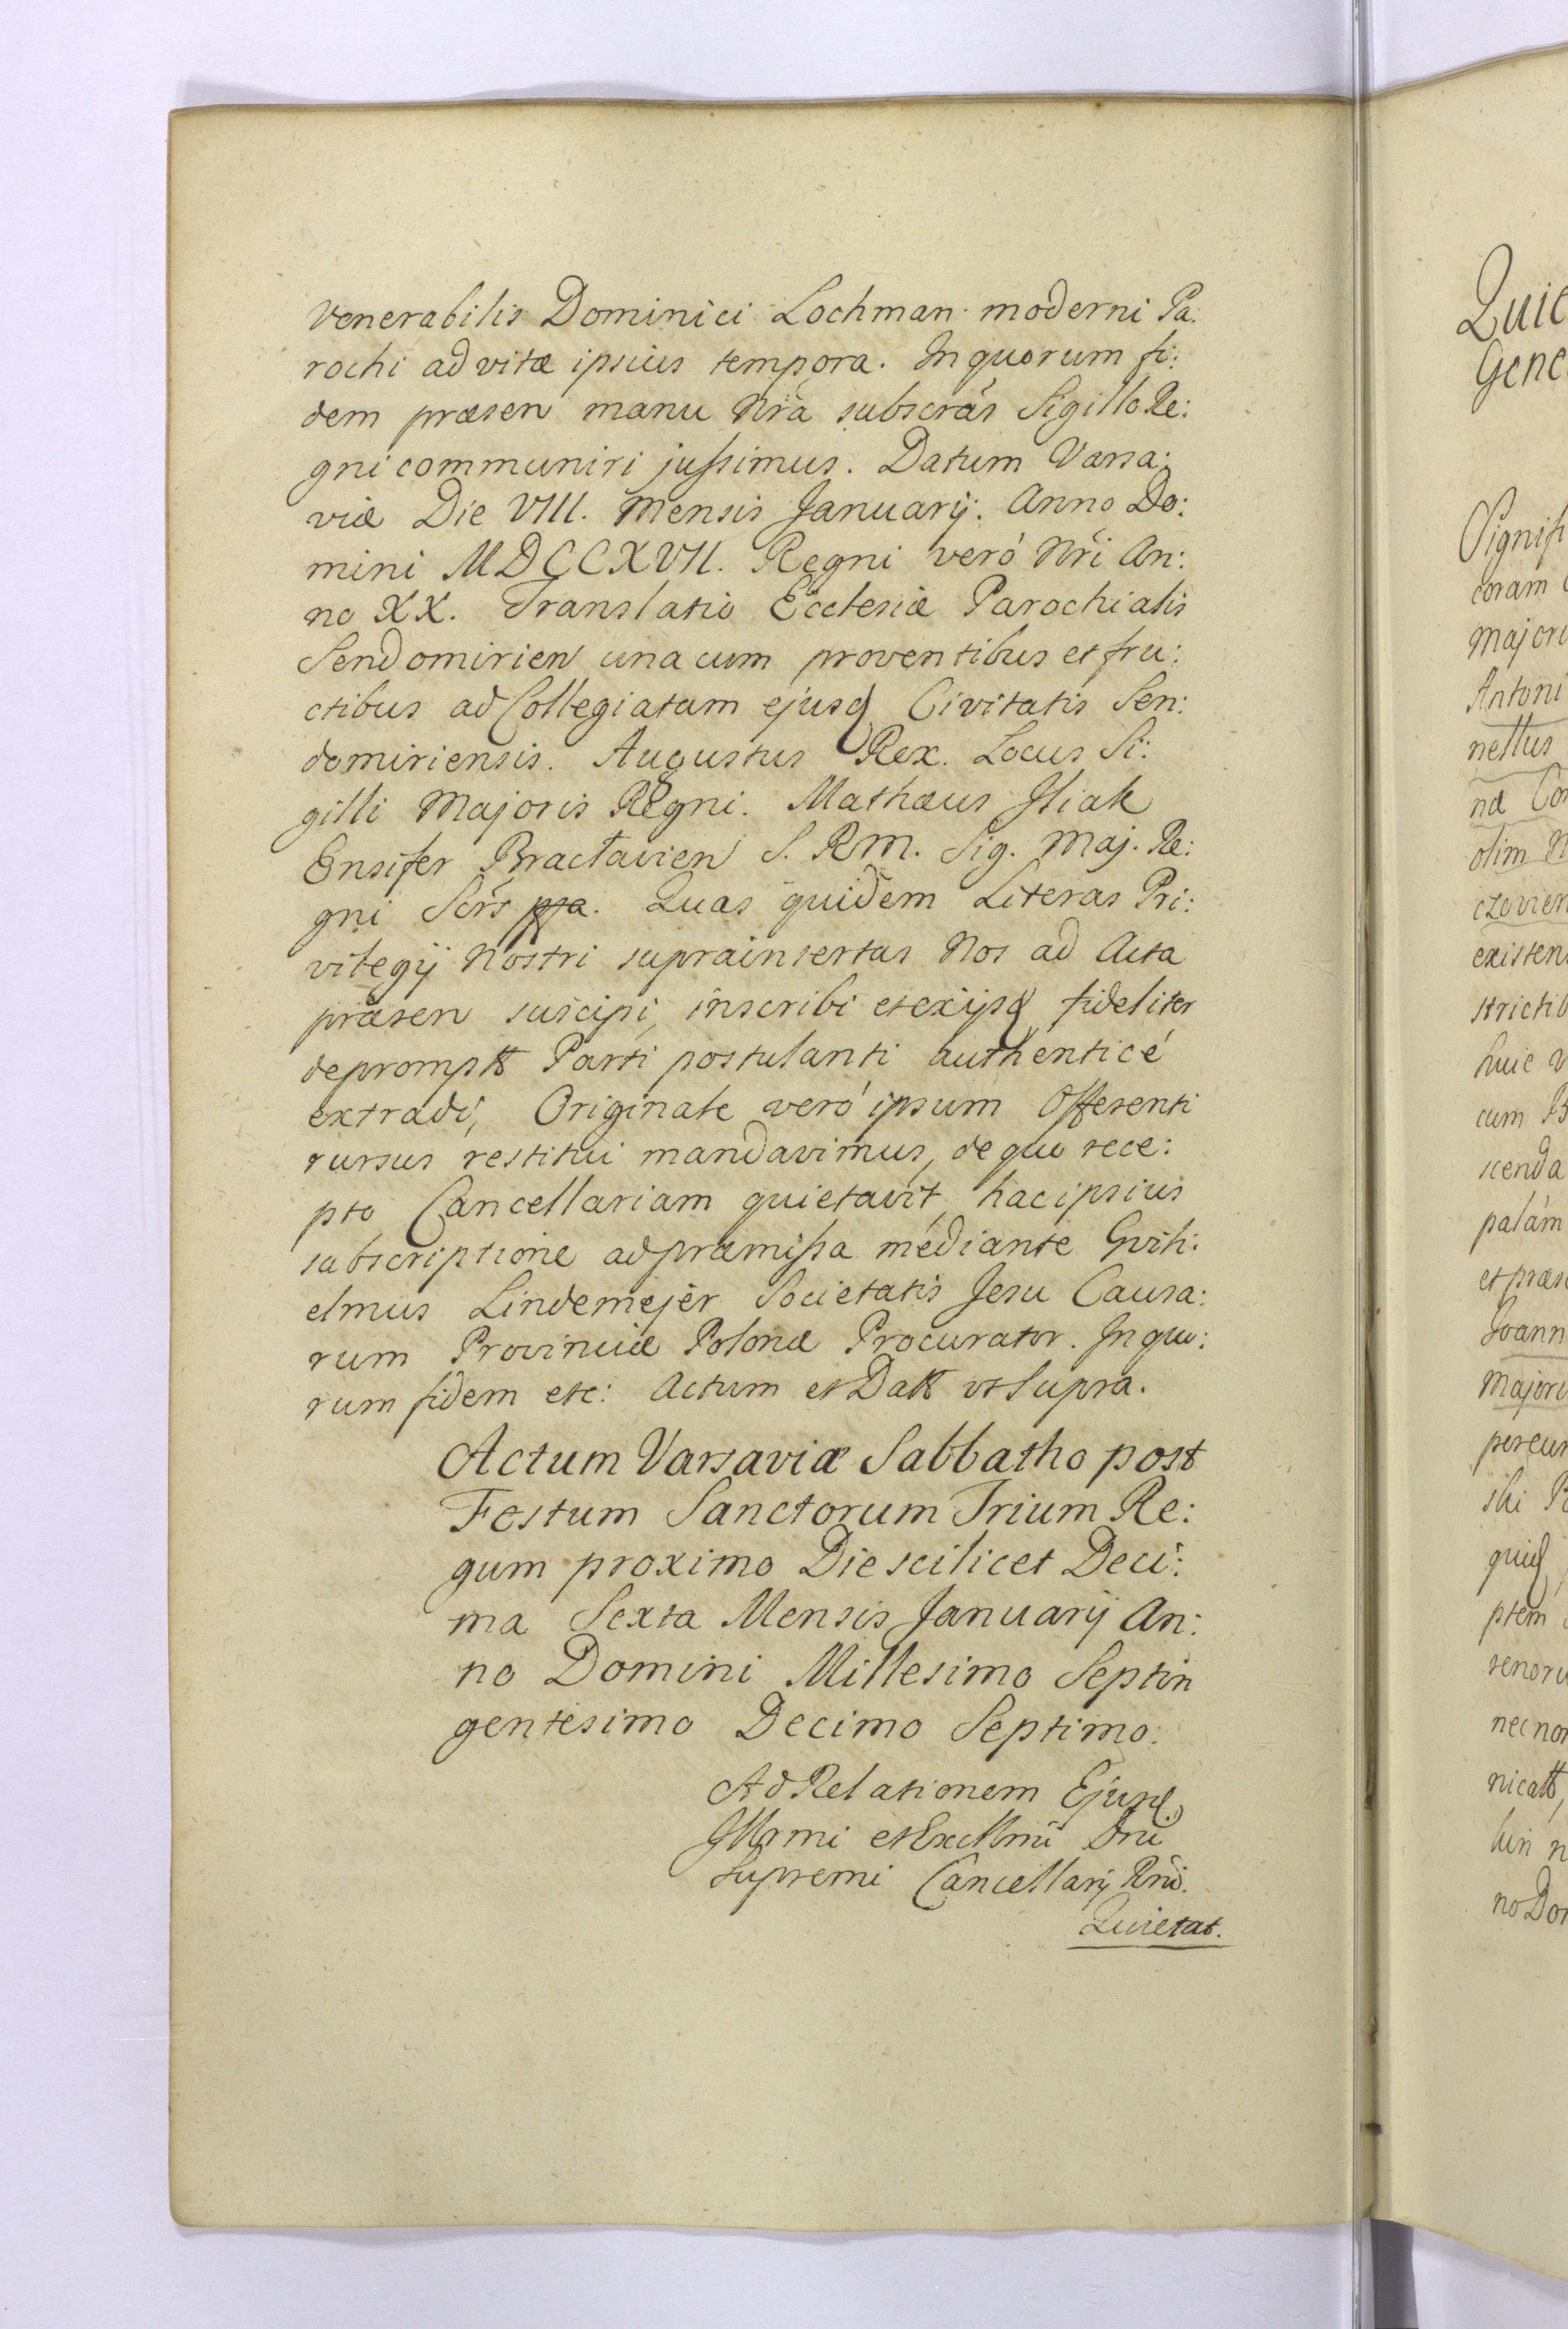 Venerabilis Dominici Lochman moderni Pa:
rochi ad vitæ ipsius tempora. In quorum fi:
dem præsen manu Nrã subscrãs Sigillo Re:
gni communiri jussimus. Datum Varsa:
viæ Die VIII. Mensis Januarij. Anno Do:
mini MDCCXVII. Regni veró Nri An:
no XX. Translatio Ecclesiæ Parochialis
Sendomirien una cum proventibus et fru:
ctibus ad Collegiatam ejusq Civitatis Sen:
domiriensis. Augustus Rex. Locus Si:
gilli Majoris Regni. Mathæus Iliak
Ensifer Bracłavien S. RM. Sig. Maj. Re:
gni Scrs ppa. Quas quidem Literas Pri:
vilegij Nostri suprainsertas Nos ad Acta
præsen suscipi, inscribi et exijsq fideliter
deprompt Parti postulanti authenticé
extradi, Originale veró ipsum Offerenti
rursus restitui mandavimus, de quo rece:
pto Cancellariam quietavit, hac ipsius
subscriptione ad præmissa mediante Gvili:
elmus Lindemejer Societatis Jesu Causa:
rum Provinciæ Polonæ Procurator. In quo:
rum fidem etc: Actum et Datt ut Supra.
Actum Varsaviæ Sabbatho post
Festum Sanctorum Trium Re:
gum proximo Die scilicet Deci:
ma Sexta Mensis Januarij An:
no Domini Millesimo Septin
gentesimo Decimo Septimo.
Ad Relationem Ejusd.
Illrmi et Excllmi Dni
Supremi Cancellarij Rni.
Quietat.
Quie
Gene
Signifi
coram
Majori
Antoni
nellus
næ Co
olim
czovien
existen
strictib
huic v
cum
scenda
palam
et præs
Joann
Majori
percur
ski
quid
ptem
tenoru
nec non
nicatt
hin
no Do